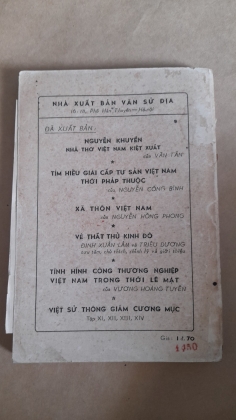 NHÀ XUẤT BẢN VĂN SỬ ĐỊA
ĐÃ XUẤT BẢN:
NGUYỄN KHUYẾN
NHÀ THƠ VIỆT NAM KIỆT XUẤT
của VĂN TÂN
TÌM HIỂU GIAI CẤP TƯ SẢN VIỆT NAM
THỜI PHÁP THUỘC
của NGUYỄN CÔNG BÌNH
XÃ THÔN VIỆT NAM
của NGUYỄN HỒNG PHONG
VÈ THẤT THỦ KINH ĐÔ
ĐINH XUÂN LÂM và TRIỆU DƯƠNG
sưu tầm, chú thích, hiệu đính và giới thiệu
TÌNH HÌNH CÔNG THƯƠNG NGHIỆP
VIỆT NAM TRONG THỜI LÊ MẠT
của VƯƠNG HOÀNG TUYÊN
VIỆT SỬ THÔNG GIÁM CƯƠNG MỤC
Tập XI, XII, XIII, XIV
Giá: